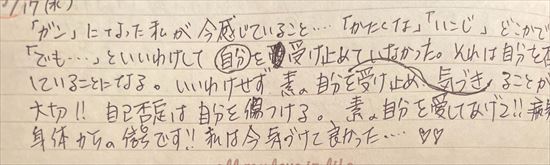 /17(水)
「ガン」になった私が今感じていること…「かたくな」「いこじ」どこかで
「でも…」といいわけして自分を受け止めていなかった。それは自分を否
していることになる。いいわけせず素の自分を受け止め、気づきることが
大切!! 自己否定は自分を傷つける。素の自分を愛してあげて!! 病気
身体からの信号です!! 私は今気づけて良かった…♡♡